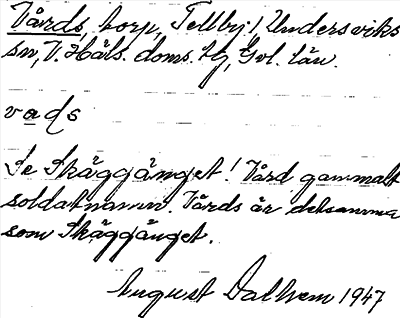 Vårds, torp, Tellby!, Undersviks
sn, V. Häls. doms. hg, Gvl. län.
vads
Se Skäggänget! Vård gammalt
soldatnamn. Vårds är detsamma
som Skäggänget.
August Dalhem 1947